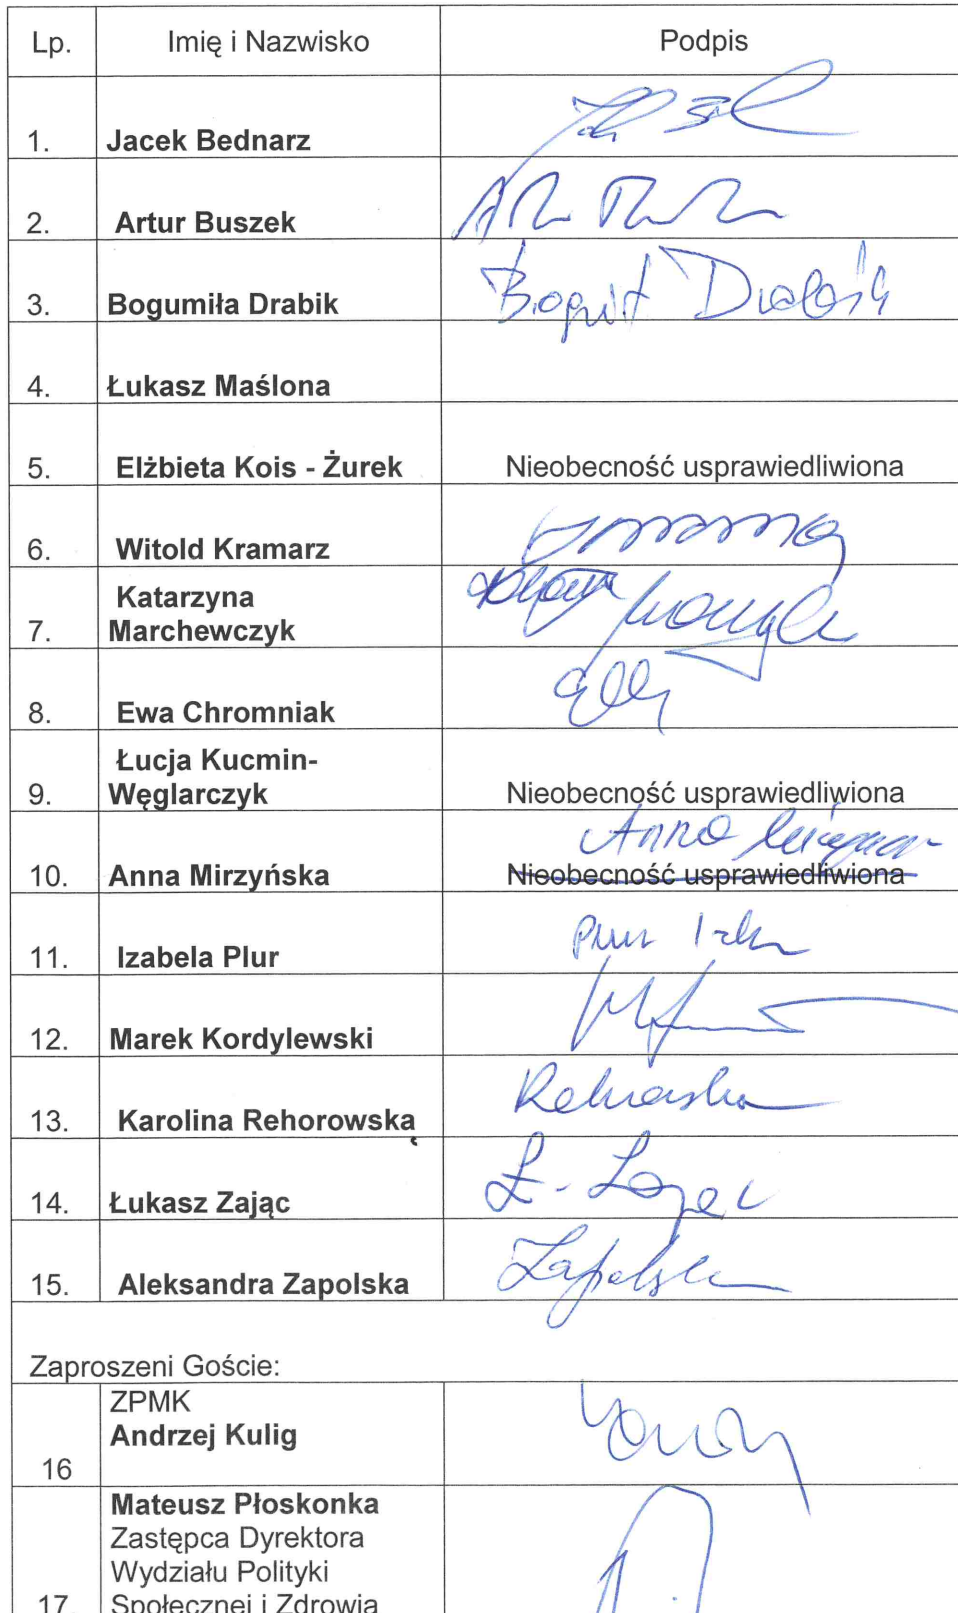 Lp. Imię i Nazwisko Podpis
1. Jacek Bednarz
2. Artur Buszek
3. Bogumiła Drabik
4. Łukasz Maślona
5. Elżbieta Kois - Żurek Nieobecność usprawiedliwiona
6. Witold Kramarz
Katarzyna
7. Marchewczyk
8. Ewa Chromniak
Łucja Kucmin-
9. Węglarczyk Nieobecność usprawiedliwiona
Anna
10. Anna Mirzyńska Nieobecność usprawiedliwiona
11. Izabela Plur
12. Marek Kordylewski
13. Karolina Rehorowska
14. Łukasz Zając Ł. Zając
15. Aleksandra Zapolska Zapolska
Zaproszeni Goście:
ZPMK
Andrzej Kulig
16
Mateusz Płoskonka
Zastępca Dyrektora
Wydziału Polityki
17. Społecznej i Zdrowia